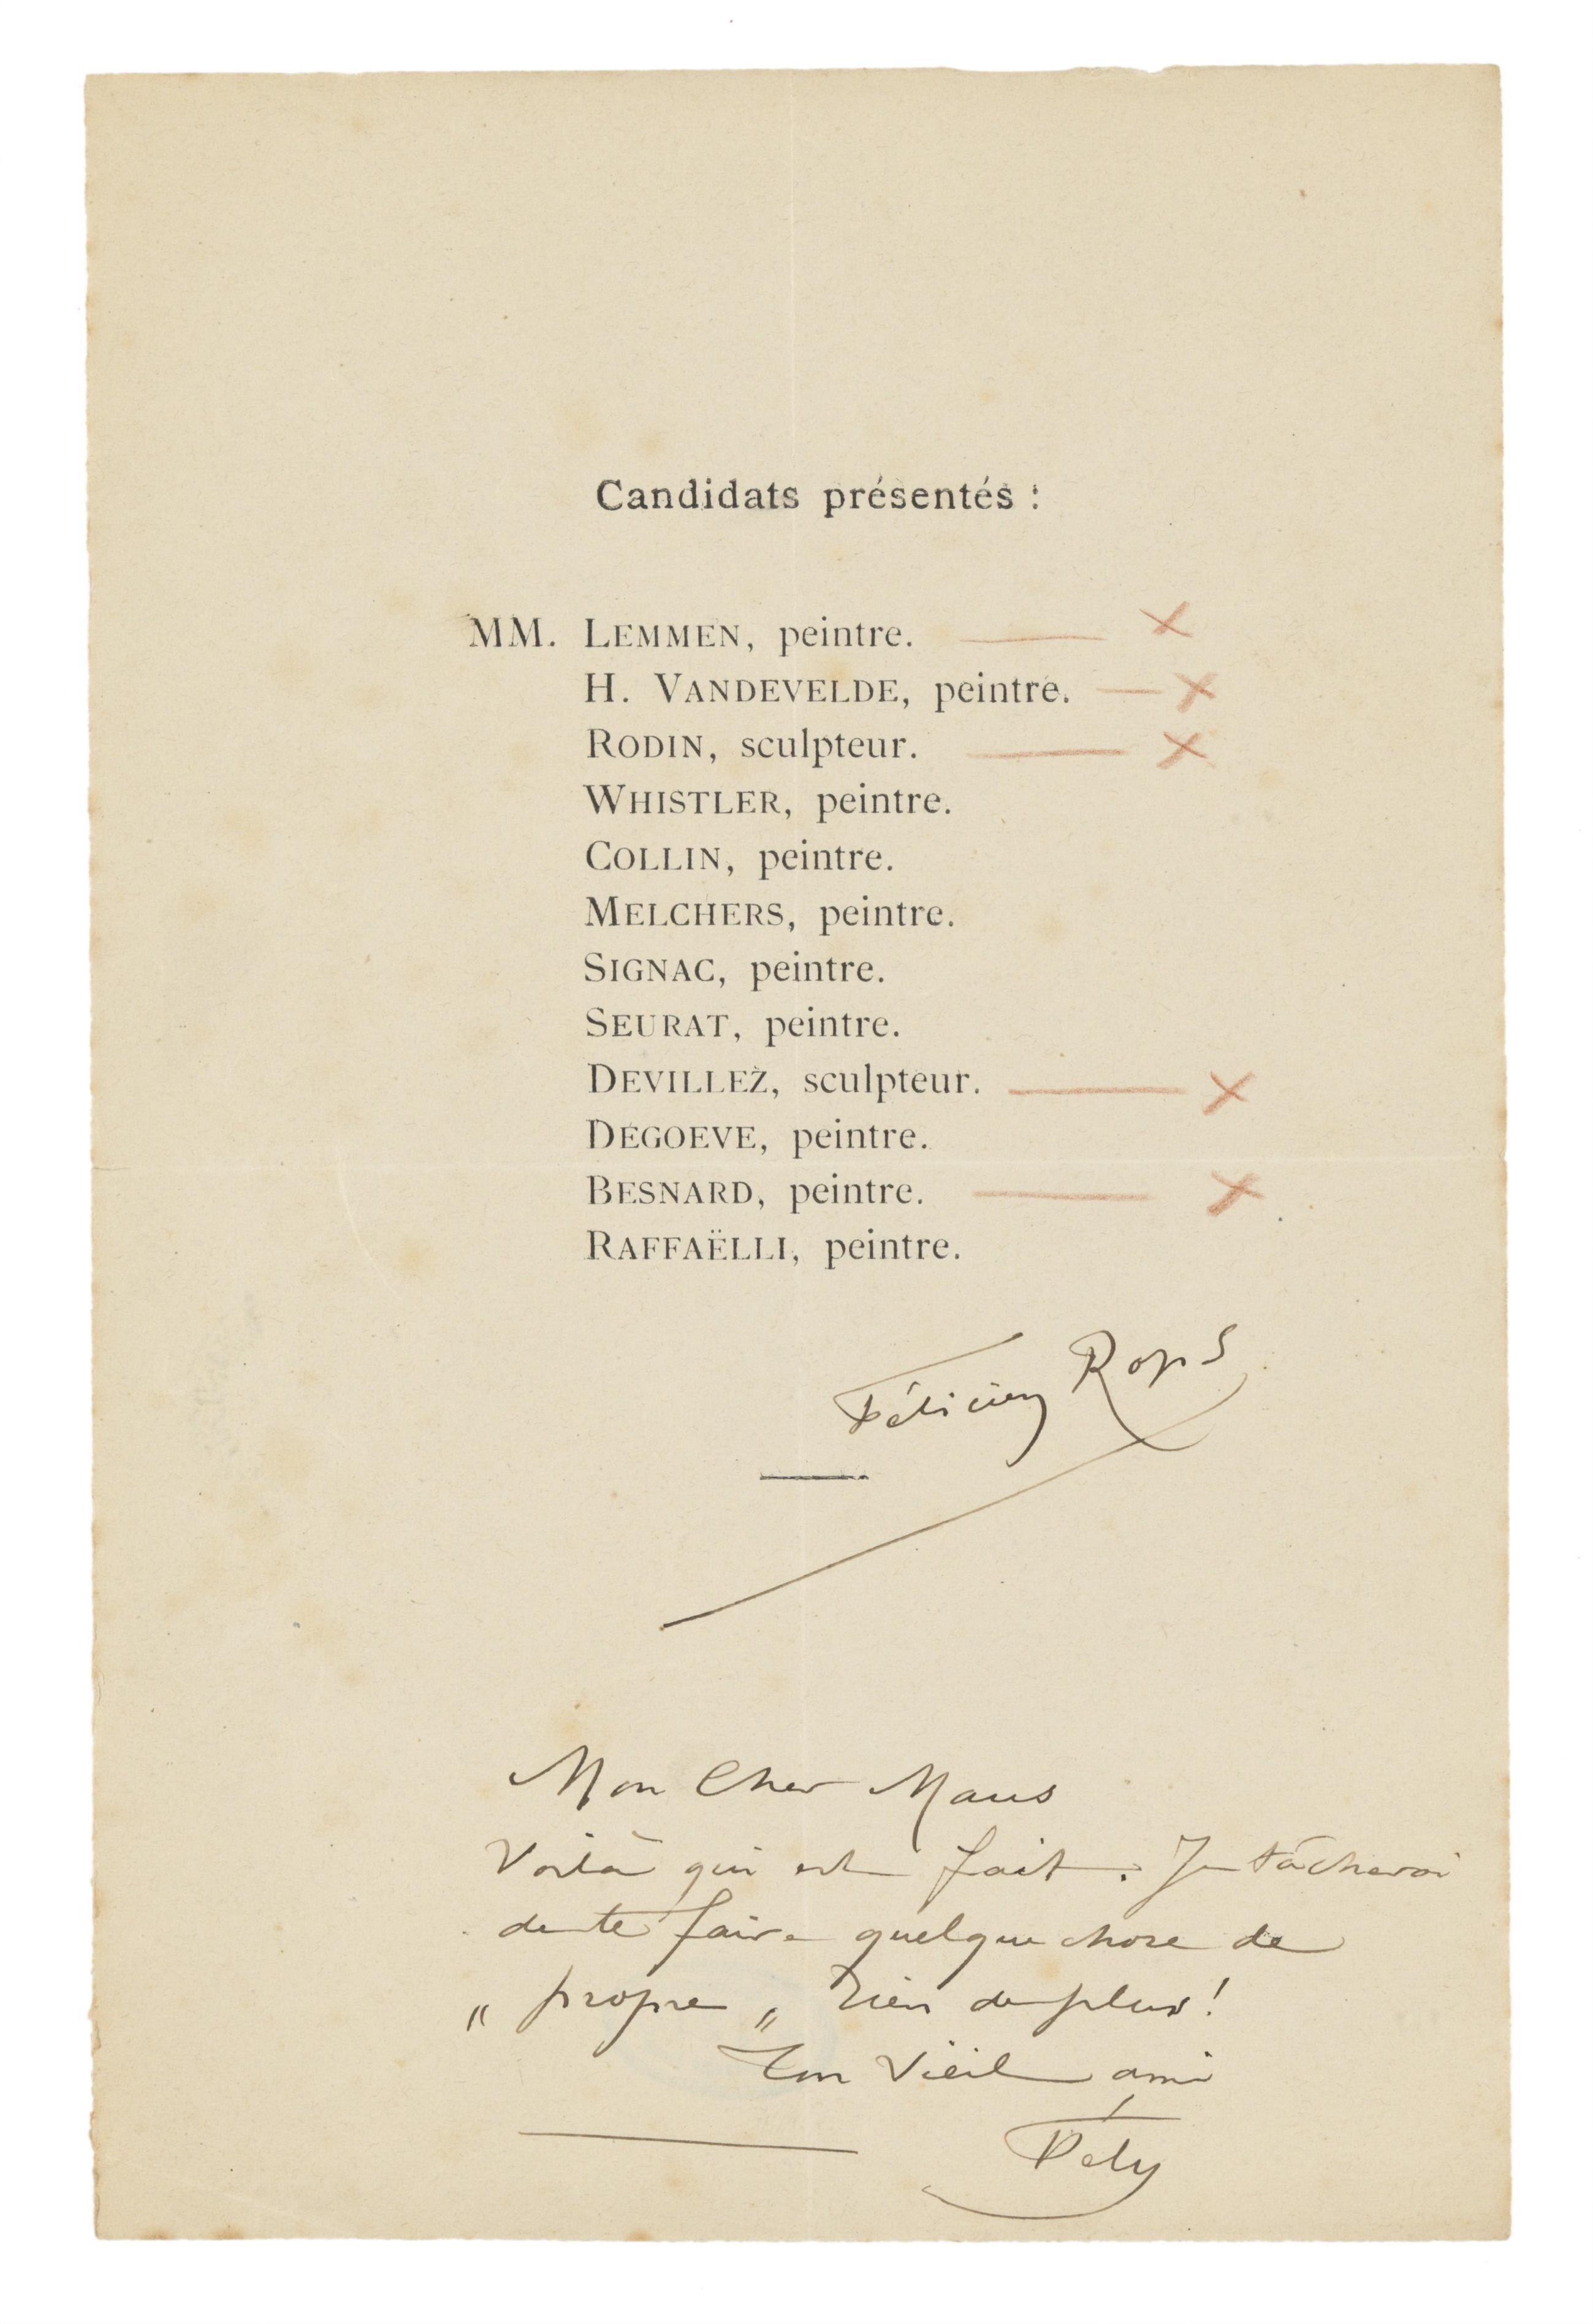 Candidats présentés :
MM. LEMMEN, peintre. ——— X
H. VANDEVELDE, peintre. — X
RODIN, sculpteur. ——— X
WHISTLER, peintre.
COLLIN, peintre.
MELCHERS, peintre.
SIGNAC, peintre.
SEURAT, peintre.
DEVILLEZ, sculpteur. ——— X
DEGOEVE, peintre.
BESNARD, peintre. ——— X
RAFFAËLLI, peintre.
Félicien Rops
Mon Cher Maus
Voilà qui est fait. Je tâcherai
de te faire quelque chose de
„ propre „ rien de plus!
Ton vieil ami
Fély